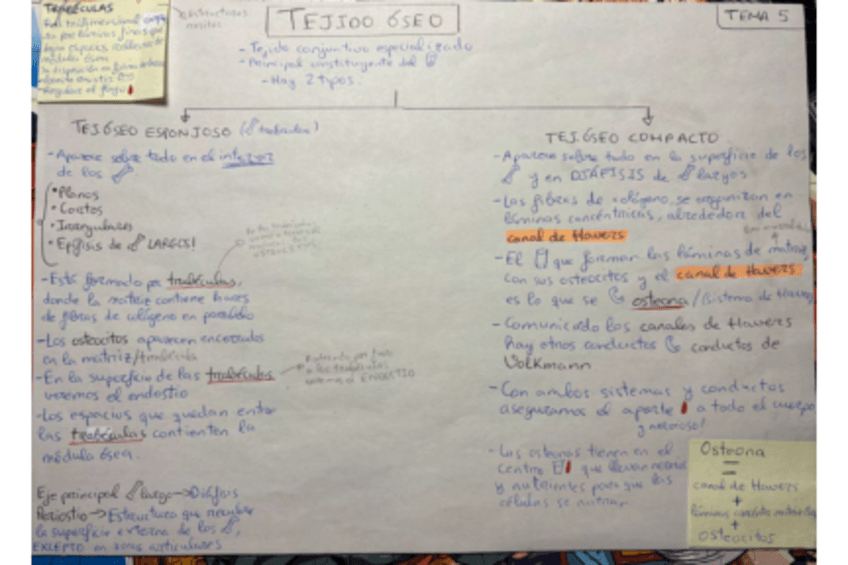 TRABÉCULAS
médula ósea
Regulan el flujo
TEJIDO ÓSEO
TEMA 5
- Tejido conjuntivo especializado
- Principal constituyente del
- Hay 2 tipos.
TEJ.ÓSEO ESPONJOSO (trabécula)
- Aparece sobre todo en el interior
de los
• Planos
• Cortos
• Irregulares
• Epífisis de LARGOS!
- Está formado por trabéculas,
donde la matriz contiene haces
de fibras de colágeno en paralelo
- Los osteocitos aparecen encerrados
en la matriz/trabécula
- En la superficie de las trabéculas
veremos el endostio
- Los espacios que quedan entre
las trabéculas contienen la
médula ósea.
Eje principal largo → Diáfisis
Periostio → Estructura que recubre
la superficie externa de los,
EXCEPTO en zonas articulares
TEJ.ÓSEO COMPACTO
- Aparece sobre todo en la superficie de los
y en DIÁFISIS de largos
- Las fibras de colágeno se organizan en
láminas concéntricas, alrededor del
canal de Havers
- El que forman las láminas de matriz,
con sus osteocitos y el canal de Havers
es lo que se osteona/(sistema de Havers
- Comunicado los canales de Havers
hay otros conductos conductos de
Volkmann
- Con ambos sistemas y conductos
aseguramos el aporte a todo el cuerpo
y nervioso!
- Las osteonas tienen en el
centro que llevan
y nutrientes para que las
células se nutran.
Osteona
=
canal de Havers
+
láminas
+
Osteocitos